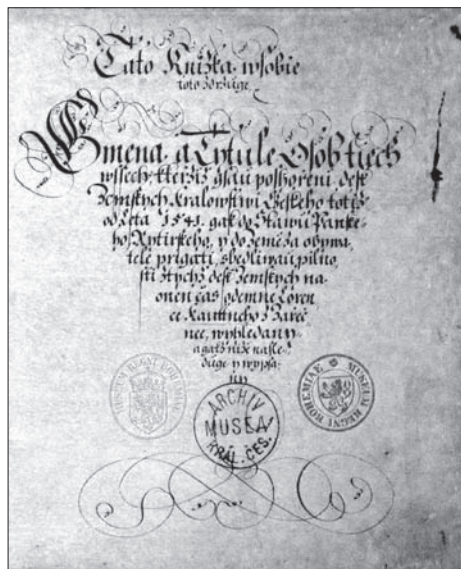 Tato Knižka wsobie
toto zdržuge
Gmena a Tytule Osob tiech
wssech kteržiž gsau po shoržení desk
Zemskych Kralowstwi Czeskeho totiž
od Leta 1541. gak do Stawu Panske-
ho Rytirskeho, y do Zemė za obywa-
tele prigati, s bedliwau pilno-
sti z tychž desk Zemskych na
onen čas odemne Loren-
ce
nec, wyhledany
a gakž niže nasle-
duge y wypsa-
ny
MUSEUM REGNI BOHEMIAE
ARCHIV
MUSEA
KRÁL. ČES.
MUSEUM REGNI BOHEMIAE